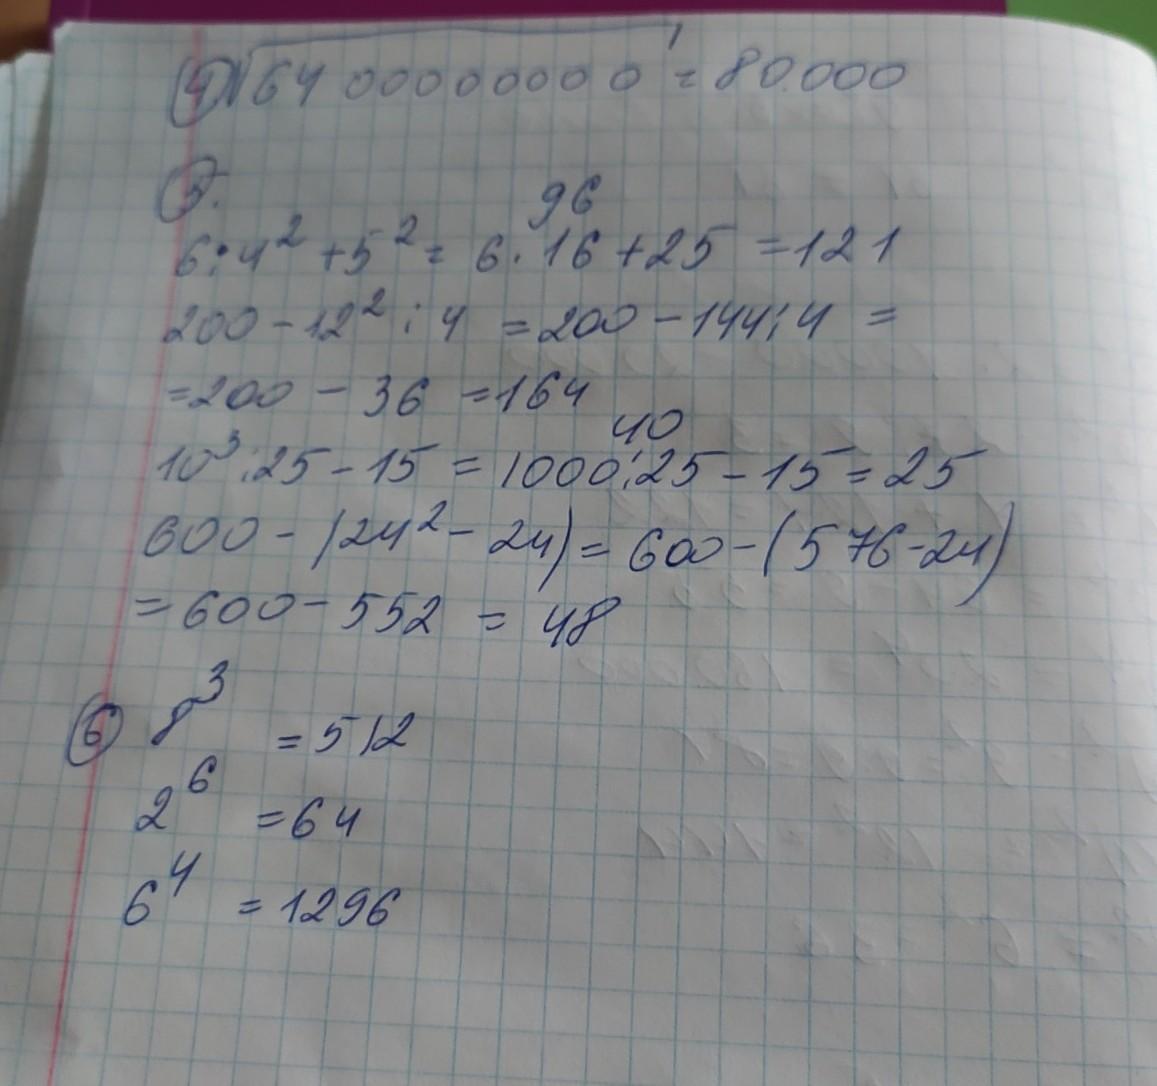 ④ √6400000000 = 80.000
⑤.
96
6 : 4² + 5² = 6 · 16 + 25 = 121
200 - 12² : 4 = 200 - 144 : 4 =
= 200 - 36 = 164
40
10³ : 25 - 15 = 1000 : 25 - 15 = 25
600 - (24² - 24) = 600 - (576 - 24)
= 600 - 552 = 48
⑥ 8³ = 512
2⁶ = 64
6⁴ = 1296